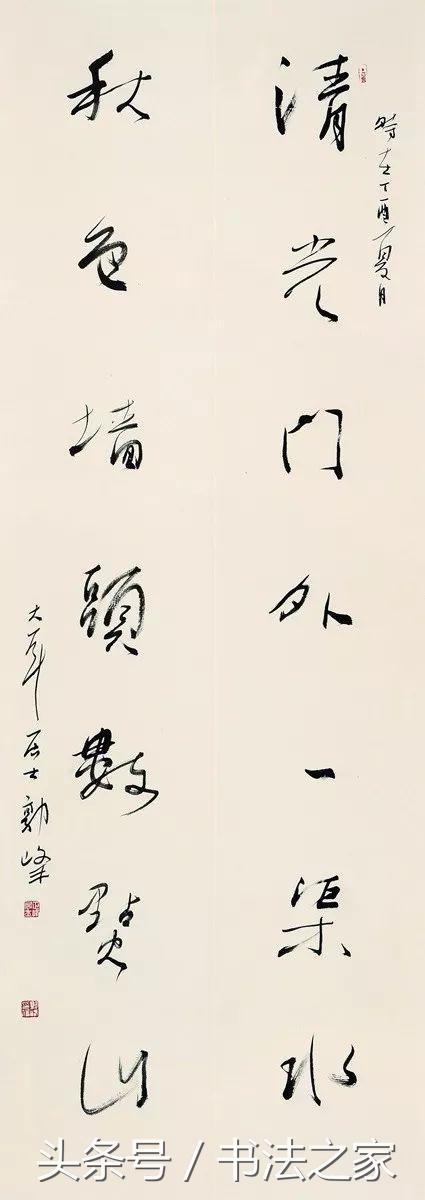 时在丁酉夏月
清光门外一渠水
秋色墙頭數點山
居士勳峰
头条号 / 书法之家